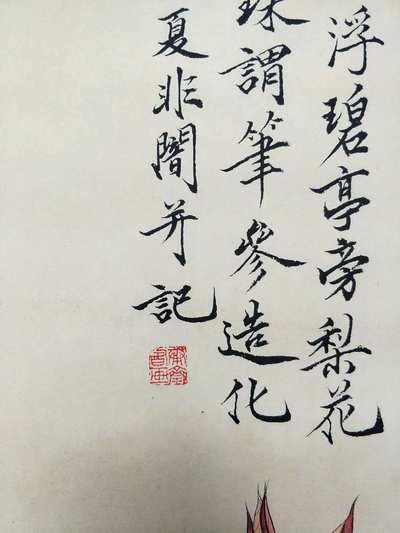 浮碧亭旁梨花
殊謂筆參造化
夏非闇并記